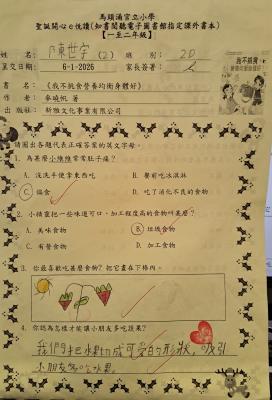 馬頭涌官立小學
聖誕開心e悅讀(如書閱聽電子圖書館指定課外書本)
【一至二年級】
姓名: 陳世宇 (2) 班別: 2D
呈交日期: 6-1-2026 家長簽署:
書名: 《我不挑食營養均衡身體好》
作者: 幸曉帆 著
出版社: 新雅文化事業有限公司
請圈出各題代表正確答案的英文字母。
1. 為甚麼小維維常常肚子痛?
A. 沒洗手便拿東西吃 B. 嬰前吃冰淇淋
C. 偏食 D. 吃了消化不良的食物
2. 小精靈把一些味道可口,加工程度高的食物叫甚麼?
A. 美味食物 B. 垃圾食物
C. 有營食物 D. 加工食物
3. 你最喜歡吃甚麼食物?把它畫在下格內。
4. 你認為怎樣才能讓小朋友多吃蔬果?
我們把水果切成可愛的形狀,吸引
小朋友多吃水果。